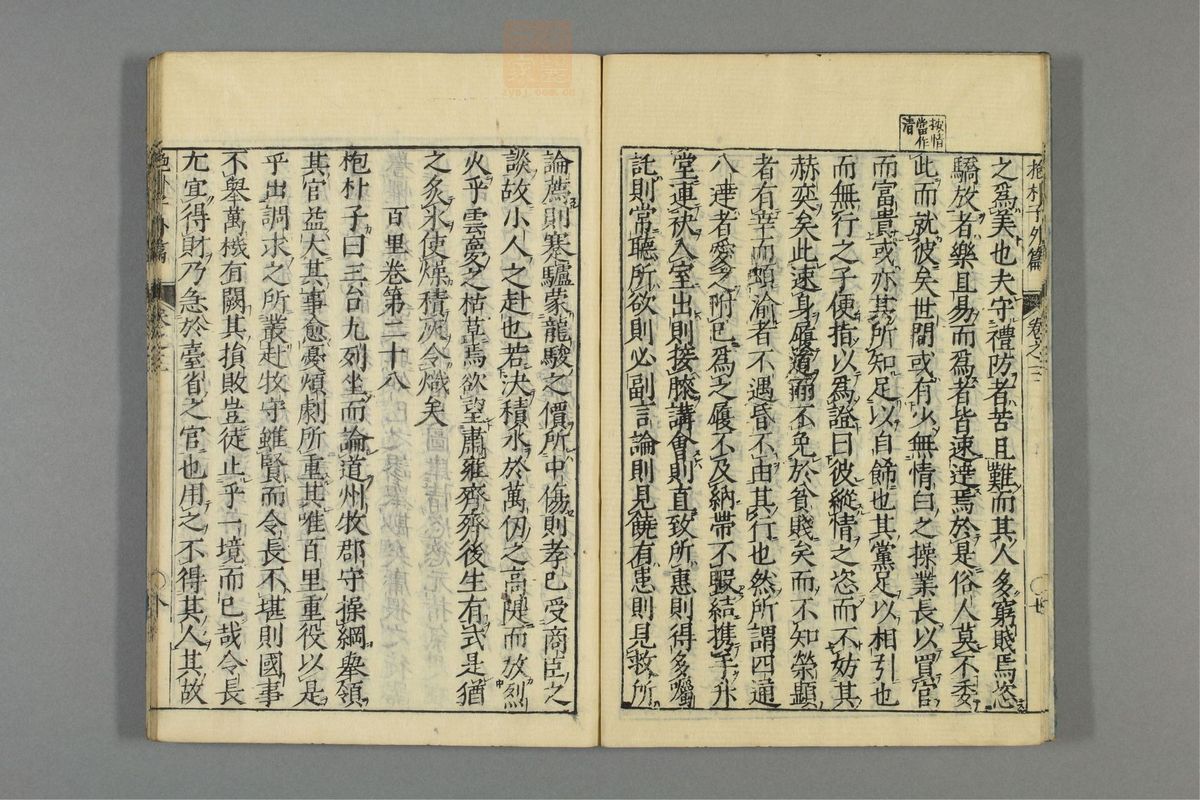 按情
當作
清
抱朴子外篇 卷之三
之爲美也夫守禮防者苦且難而其人多窮賤焉恣
驕放者樂且易而爲者皆速達焉於是俗人莫不委
此而就彼矣世間或有少無情白之操業長以買官
而富貴或亦其所知足以自飾也其黨足以相引也
而無行之子便指以爲證曰彼縱情之恣而不妨其
赫奕矣此速身履道而不免於貧賤矣而不知榮顯
者有幸而頓淪者不遇昏不由其行也然所謂四通
八達者愛之附已爲之履不及納帶不暇結携手升
堂連袂入室出則接膝講會則直致所惠則得多囑
託則常聽所欲則必副言論則見饒有患則見救所
論薦則寒驢蒙龍駿之價所中傷則孝已受商臣之
談故小人之赴也若決積水於萬仞之高隄而放烈
火乎雲夢之枯草焉欲望肅雍齊齊後生有式是猶
之炙氷使燥積灰令熾矣
百里卷第二十八
抱朴子曰三台九列坐而論道州牧郡守操綱舉領
其官益大其事愈憂煩劇所重其唯百里重役以是
乎出調求之所叢赴牧守雖賢而令長不堪則國事
不舉萬機有闕其損敗豈徒止乎一境而已哉令長
尤宜得財乃急於臺省之官也用之不得其人其故
外篇